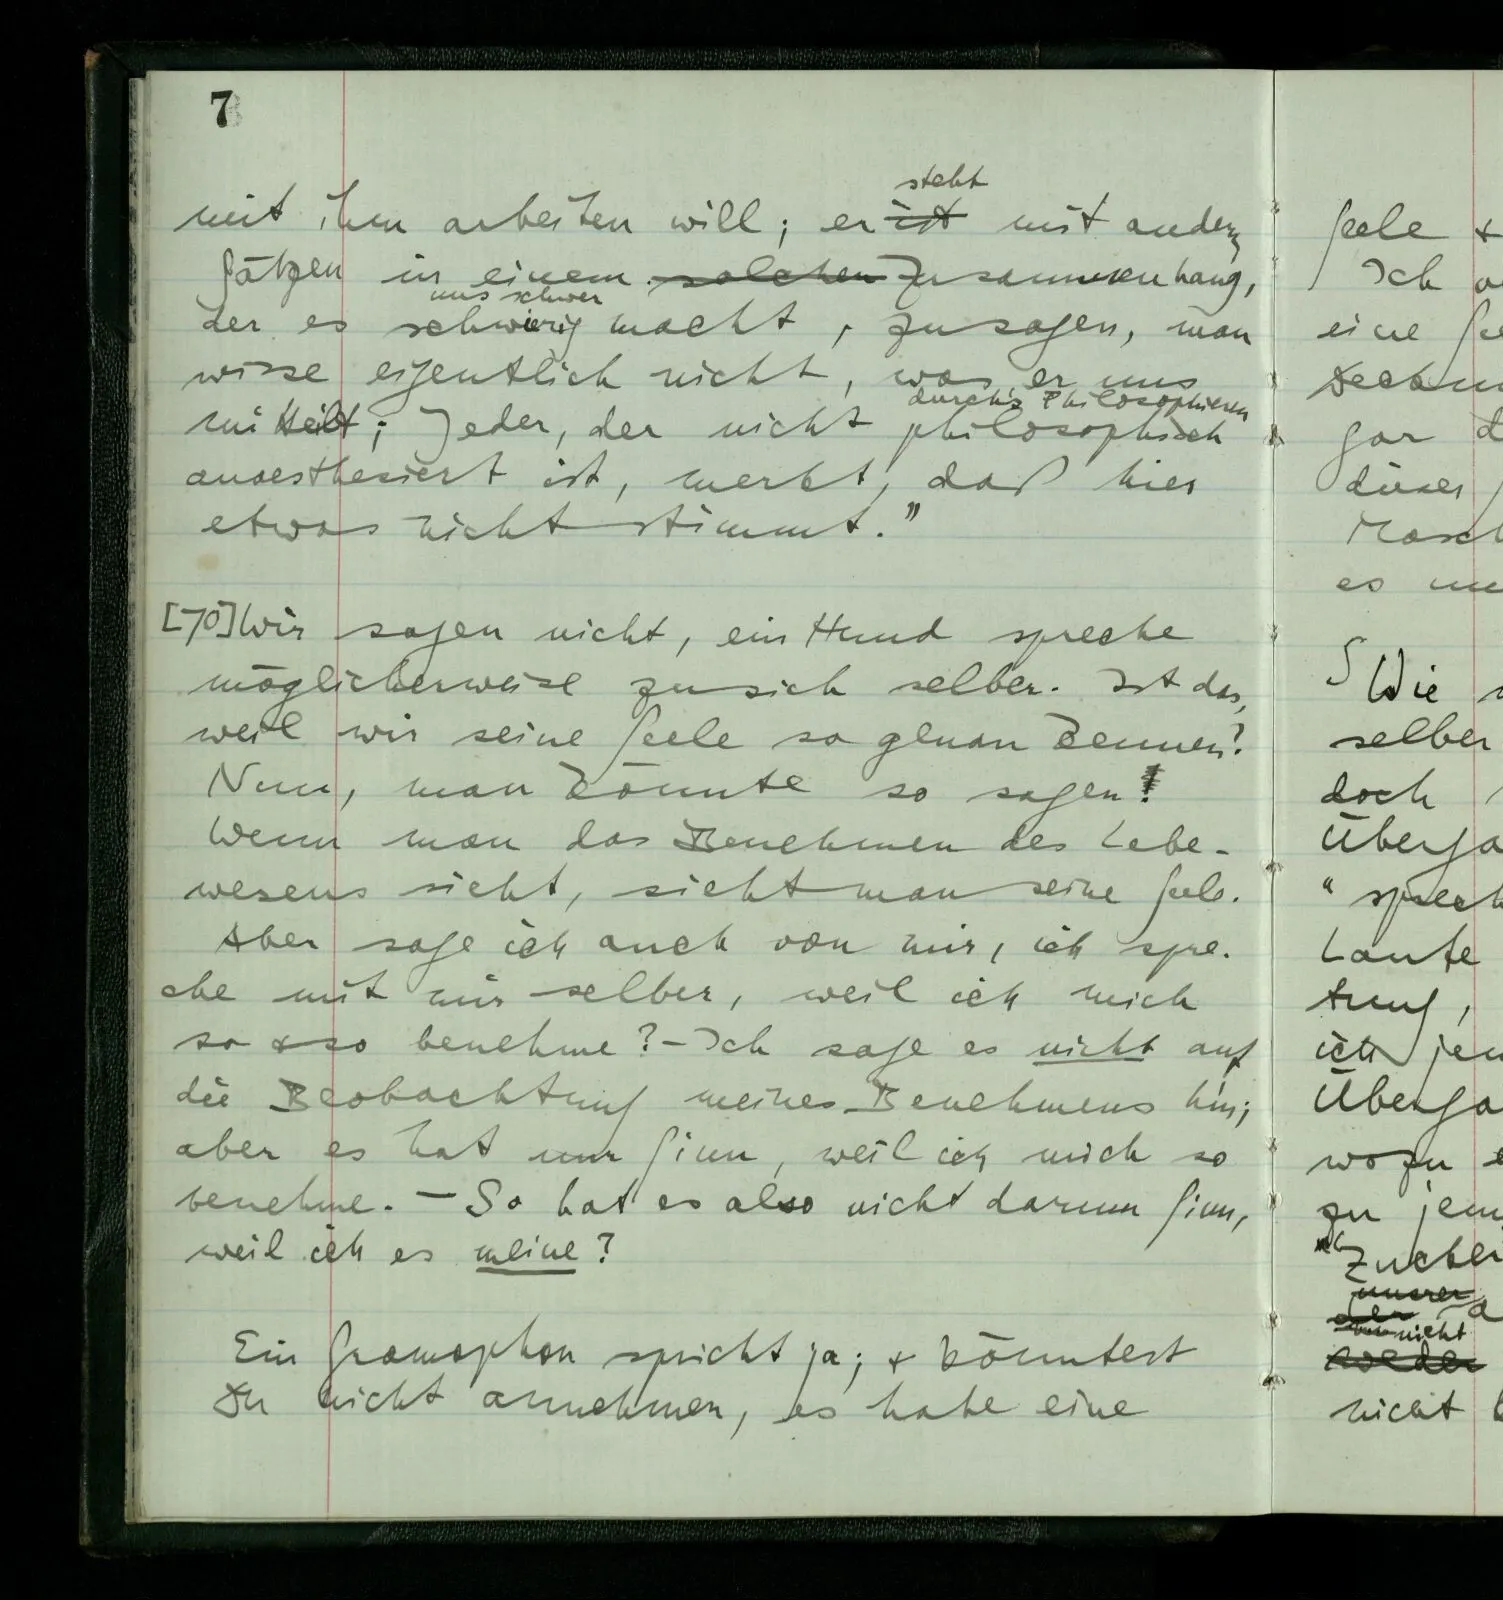 7
steht
mit ihm arbeiten will; er ist mit andern
Sätzen in einem solchen Zusammenhang,
uns schwer
der es schwierig macht, zu sagen, man
wisse eigentlich nicht, was er uns
durch's Philosophieren
mitteilt; Jeder, der nicht philosophisch
anaesthesiert ist, merkt, daß hier
etwas nicht stimmt."
[70] Wir sagen nicht, ein Hund spreche
möglicherweise zu sich selber. Ist das,
weil wir seine Seele so genau kennen?
Nun, man könnte so sagen!
Wenn man das Benehmen des Lebe-
wesens sieht, sieht man seine Seele.
Aber sage ich auch von mir, ich spre-
che mit mir selber, weil ich mich
so & so benehme? – Ich sage es nicht auf
die Beobachtung meines Benehmens hin;
aber es hat nur Sinn, weil ich mich so
benehme. – So hat es also nicht darum Sinn,
weil ich es meine?
Ein Gramophon spricht ja; & könntest
Du nicht annehmen, es habe eine
Seele &
Ich
eine
gar
dieser
es
Wie
selber
doch
"sprech
Laute
tung,
ich jem
wozu
zu jem
unserer
der
nicht
weder
nicht